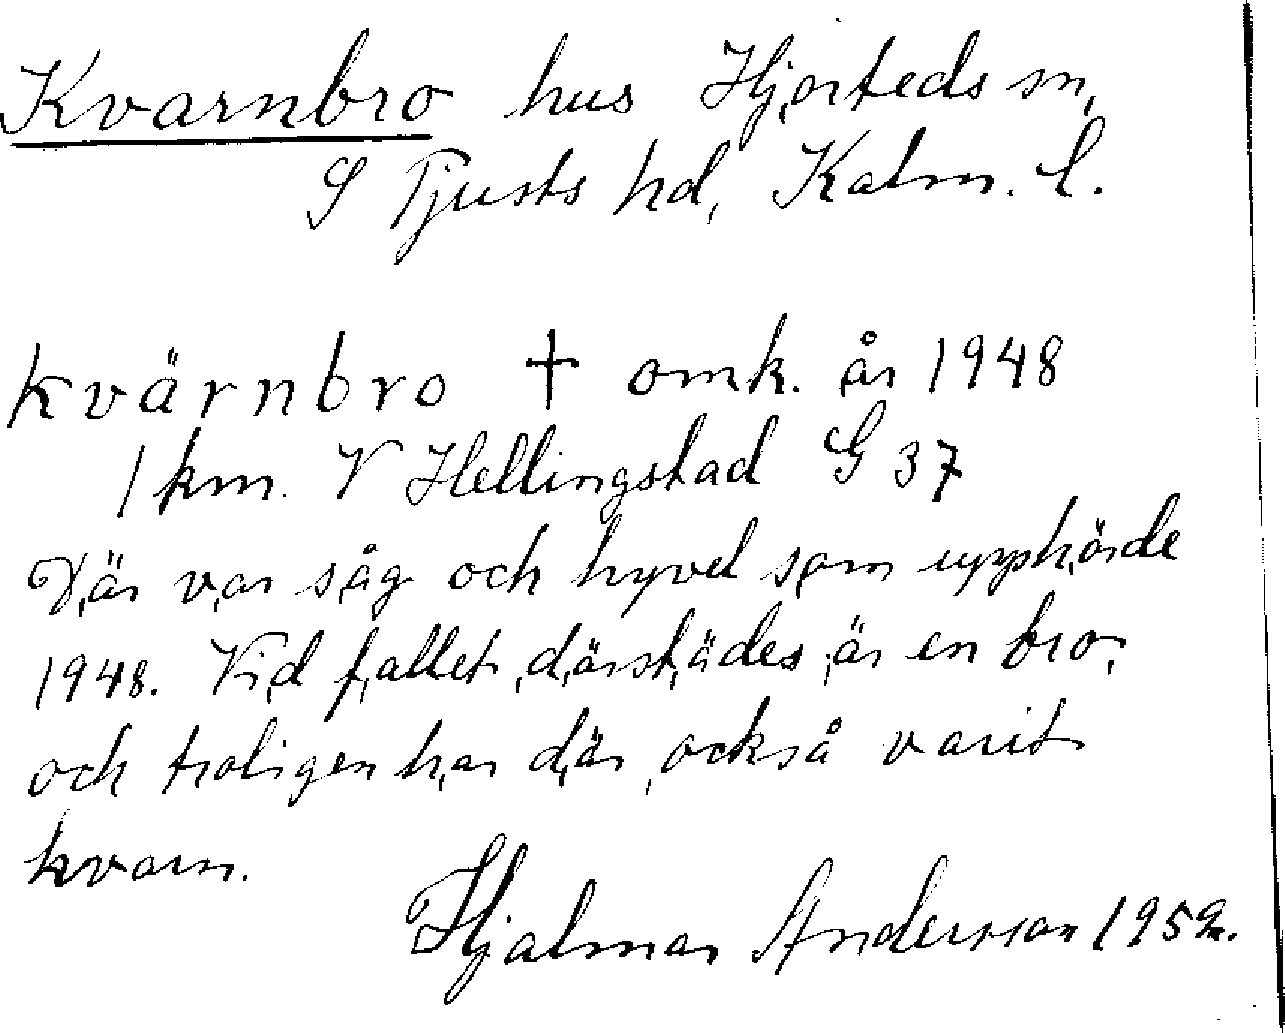 Kvarnbro hus Hjorteds sn,
S Tjusts hd, Kalm. l.
kvärnbro † omk. år 1948
1 km. V Hellingstad G 37
Där var såg och hyvel som upphörde
1948. Vid fallet därstädes är en bro,
och troligen har där också varit
kvarn.
Hjalmar Andersson 1952.